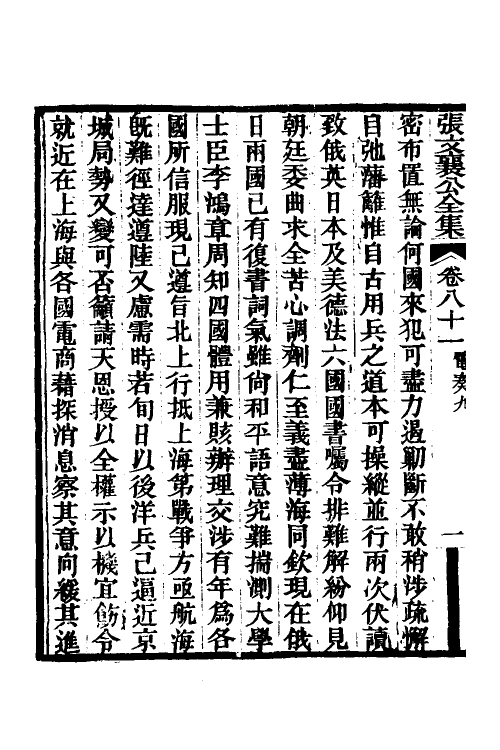 張文襄公全集 卷八十一 電奏九 一
密布置無論何國來犯可盡力遏勦斷不敢稍涉疏懈
自弛藩籬惟自古用兵之道本可操縱並行兩次伏讀
致俄英日本及美德法六國國書囑令排難解紛仰見
朝廷委曲求全苦心調劑仁至義盡薄海同欽現在俄
日兩國已有復書詞氣雖尙和平語意究難揣測大學
士臣李鴻章周知四國體用兼賅辦理交涉有年爲各
國所信服現已遵旨北上行抵上海第戰爭方亟航海
旣難徑達遵陸又慮需時若旬日以後洋兵已逼近京
城局勢又變可否籲請天恩授以全權示以機宜飭令
就近在上海與各國電商藉探消息察其意向緩其進